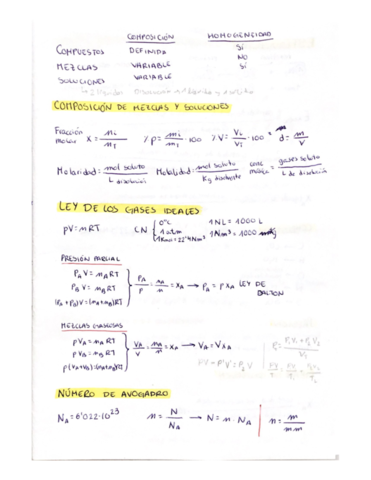 COMPOSICIÓN HOMOGENEIDAD
COMPUESTOS DEFINIDA SÍ
MEZCLAS VARIABLE NO
SOLUCIONES VARIABLE SÍ
COMPOSICIÓN DE MEZCLAS Y SOLUCIONES
Fracción molar X = ni/nt %P = mi/mt · 100 %V = Vi/Vt · 100 d = m/V
Molaridad = mol soluto/L disolución Molalidad = mol soluto/Kg disolvente conc másica = g soluto/L de disolución
LEY DE LOS GASES IDEALES
pV = nRT CN { 0°C 1NL = 1000 L
1 atm 1Nm³ = 1000
1 Kmol = 22'4 Nm³
PRESIÓN PARCIAL
PA V = nA RT
PB V = nB RT
(PA + PB)V = (nA + nB)RT
PA/P = nA/n = XA → PA = P XA LEY DE DALTON
MEZCLAS GASEOSAS
PVA = nA RT
PVB = nB RT
P(VA + VB) = (nA + nB)RT
VA/V = nA/n = XA → VA = V XA
NÚMERO DE AVOGADRO
NA = 6'022·10²³ n = N/NA → N = n · NA n = m/mm